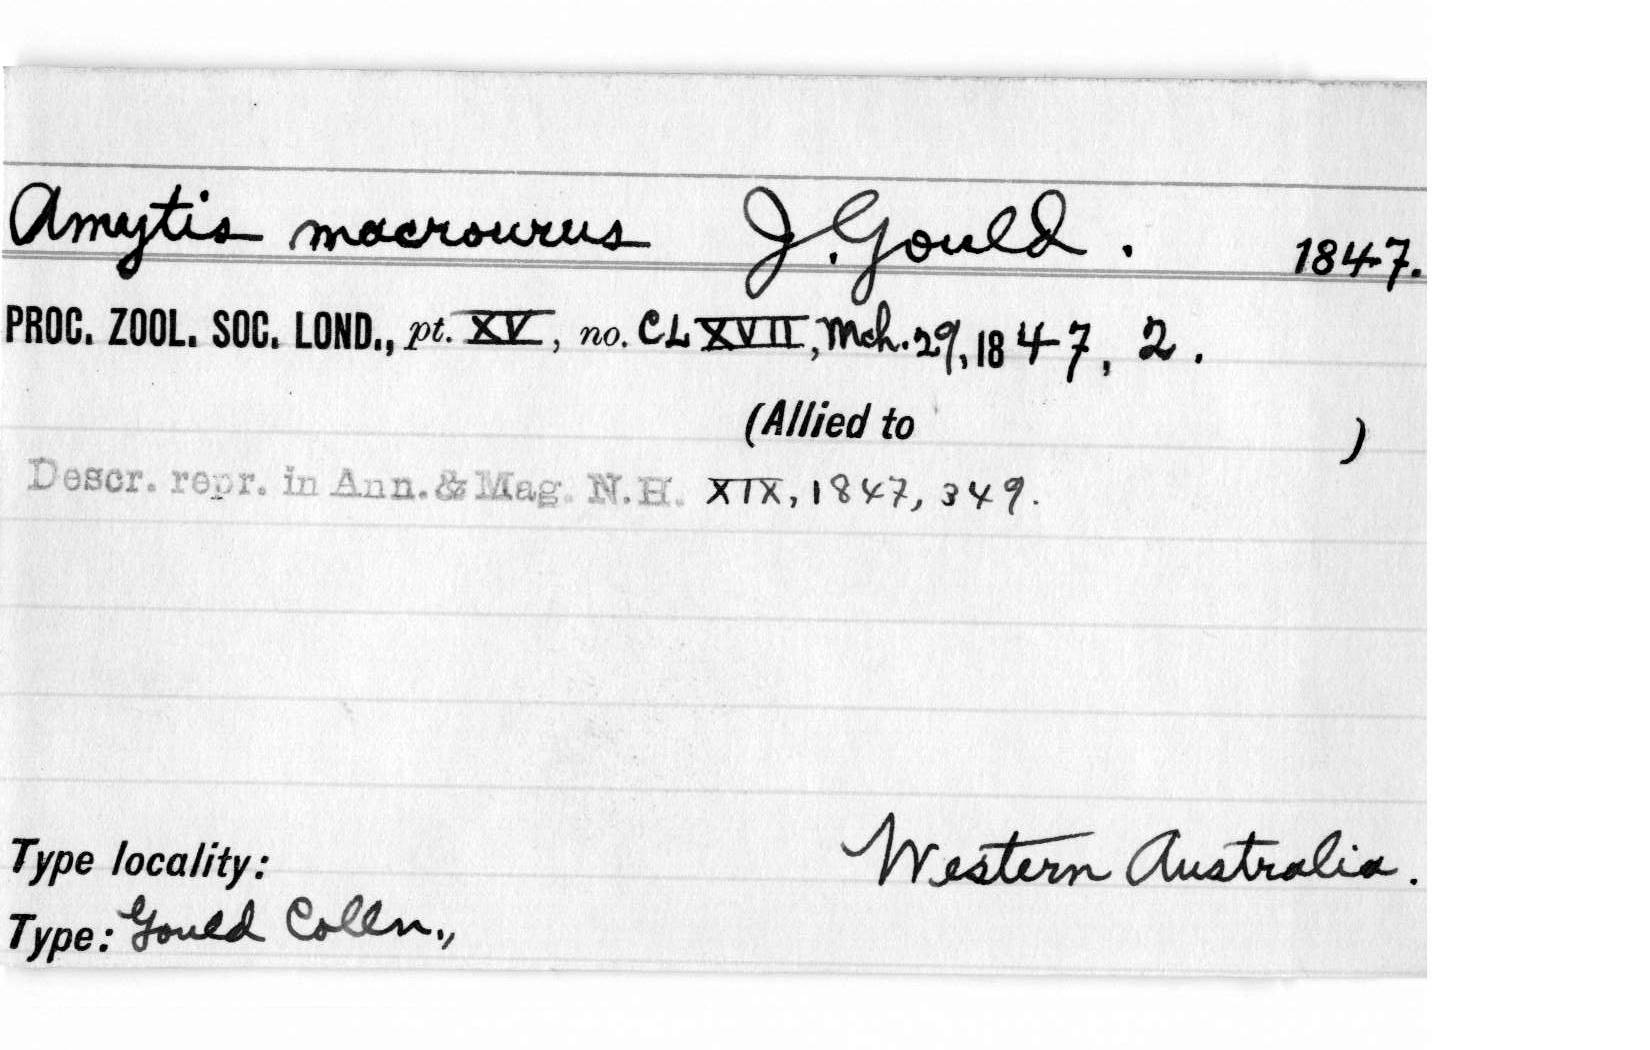 Amytis macrourus J. Gould. 1847.
PROC. ZOOL. SOC. LOND., pt. XV, no. CLXVII, Mch. 29, 1847, 2.
(Allied to )
Descr. repr. in Ann. & Mag. N.H. XIX, 1847, 349.
Type locality: Western Australia.
Type: Gould Colln.,